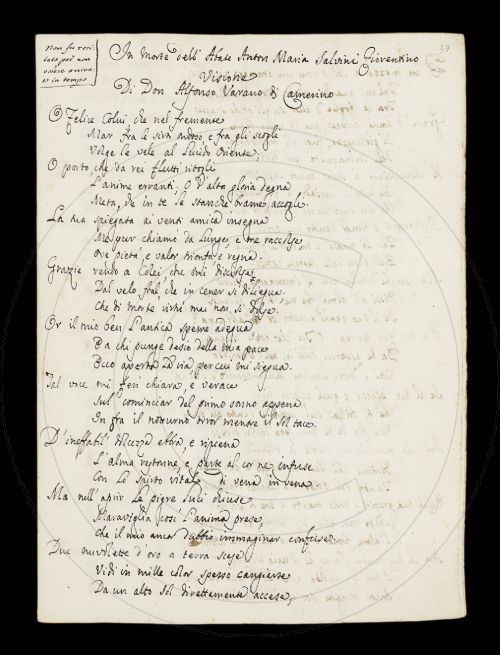 Non fu reci-
tato per non
essere arriva-
to in tempo
39
In morte dell' Abate Anton Maria Salvini Fiorentino
Visione
Di Don Alfonso Varano di Camerino
O Felice Colui che nel fremente
Mar fra le sirti ondoso e fra gli scogli
Volge le vele al lucido Oriente;
O porto che da rei flutti ritogli
L'anime erranti, O d'alta gloria degna
Meta, che in te le stanche brame accogli.
La tua spiegata ai venti amica insegna
Me pur chiamò da lunge, e me raccolse
Ove pietà, e valor trionfa e regna.
Grazie rendo a Colei che mi disciolse
Dal velo fral, che in cener si dilegua.
Che di morte virtù mai non si dolse.
Or il mio ben l'antica speme adegua,
Da chi punge desio della mia pace
Ecco aperta la via, per cui mi siegua.
Tal voce mi ferì chiara, e verace
Sul cominciar del primo sonno appena
In fra il notturno orror mentre il Sol tace.
D'ineffabil dolcezza ebra, e ripiena
L'alma restonne, e parte al cor ne infuse
Con lo spirto vitale di vena in vena.
Ma nell' aprir le pigre luci chiuse
Maraviglia così l'anima prese,
Che il mio ancor dubbio immaginar confuse.
Due nuvolette d'oro a terra scese
Vidi in mille color spesso cangiarse
Da un alto Sol direttamente accese,